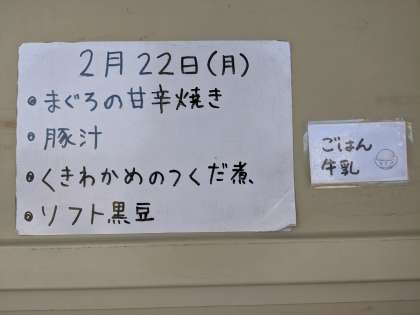 2月22日(月)
・まぐろの甘辛焼き
・豚汁
・くきわかめのつくだ煮
・ソフト黒豆
ごはん
牛乳